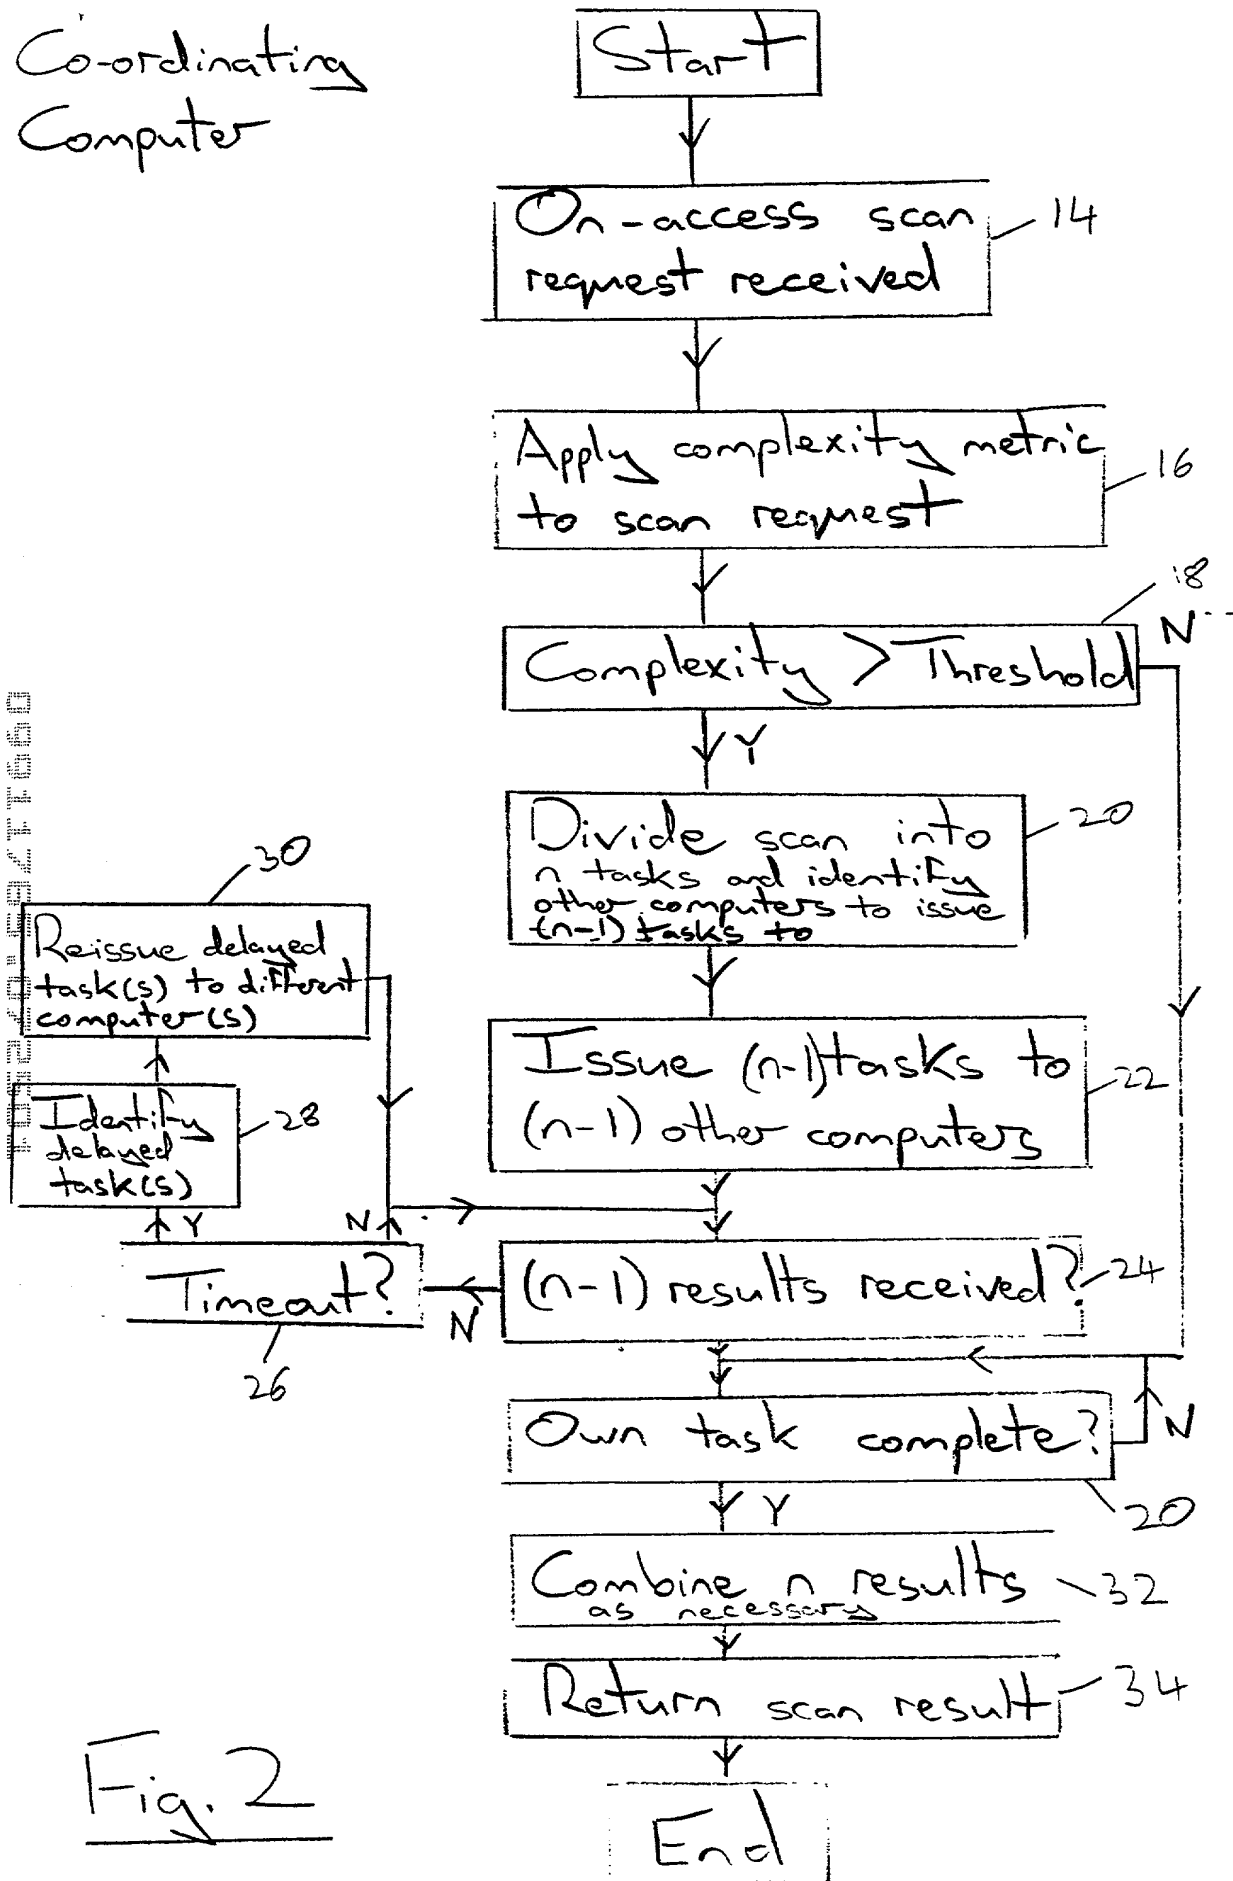 Co-ordinating
Computer
Start
On-access scan
request received
14
Apply complexity metric
to scan request
16
18
Complexity > Threshold
N
Y
Divide scan into
n tasks and identify
other computers to issue
(n-1) tasks to
20
30
Reissue delayed
task(s) to different
computer(s)
Issue (n-1) tasks to
(n-1) other computers
22
Identify
delayed
task(s)
28
Y
N
Timeout?
26
N
(n-1) results received?
24
Own task complete?
N
20
Y
Combine n results
as necessary
32
Return scan result
34
End
Fig. 2